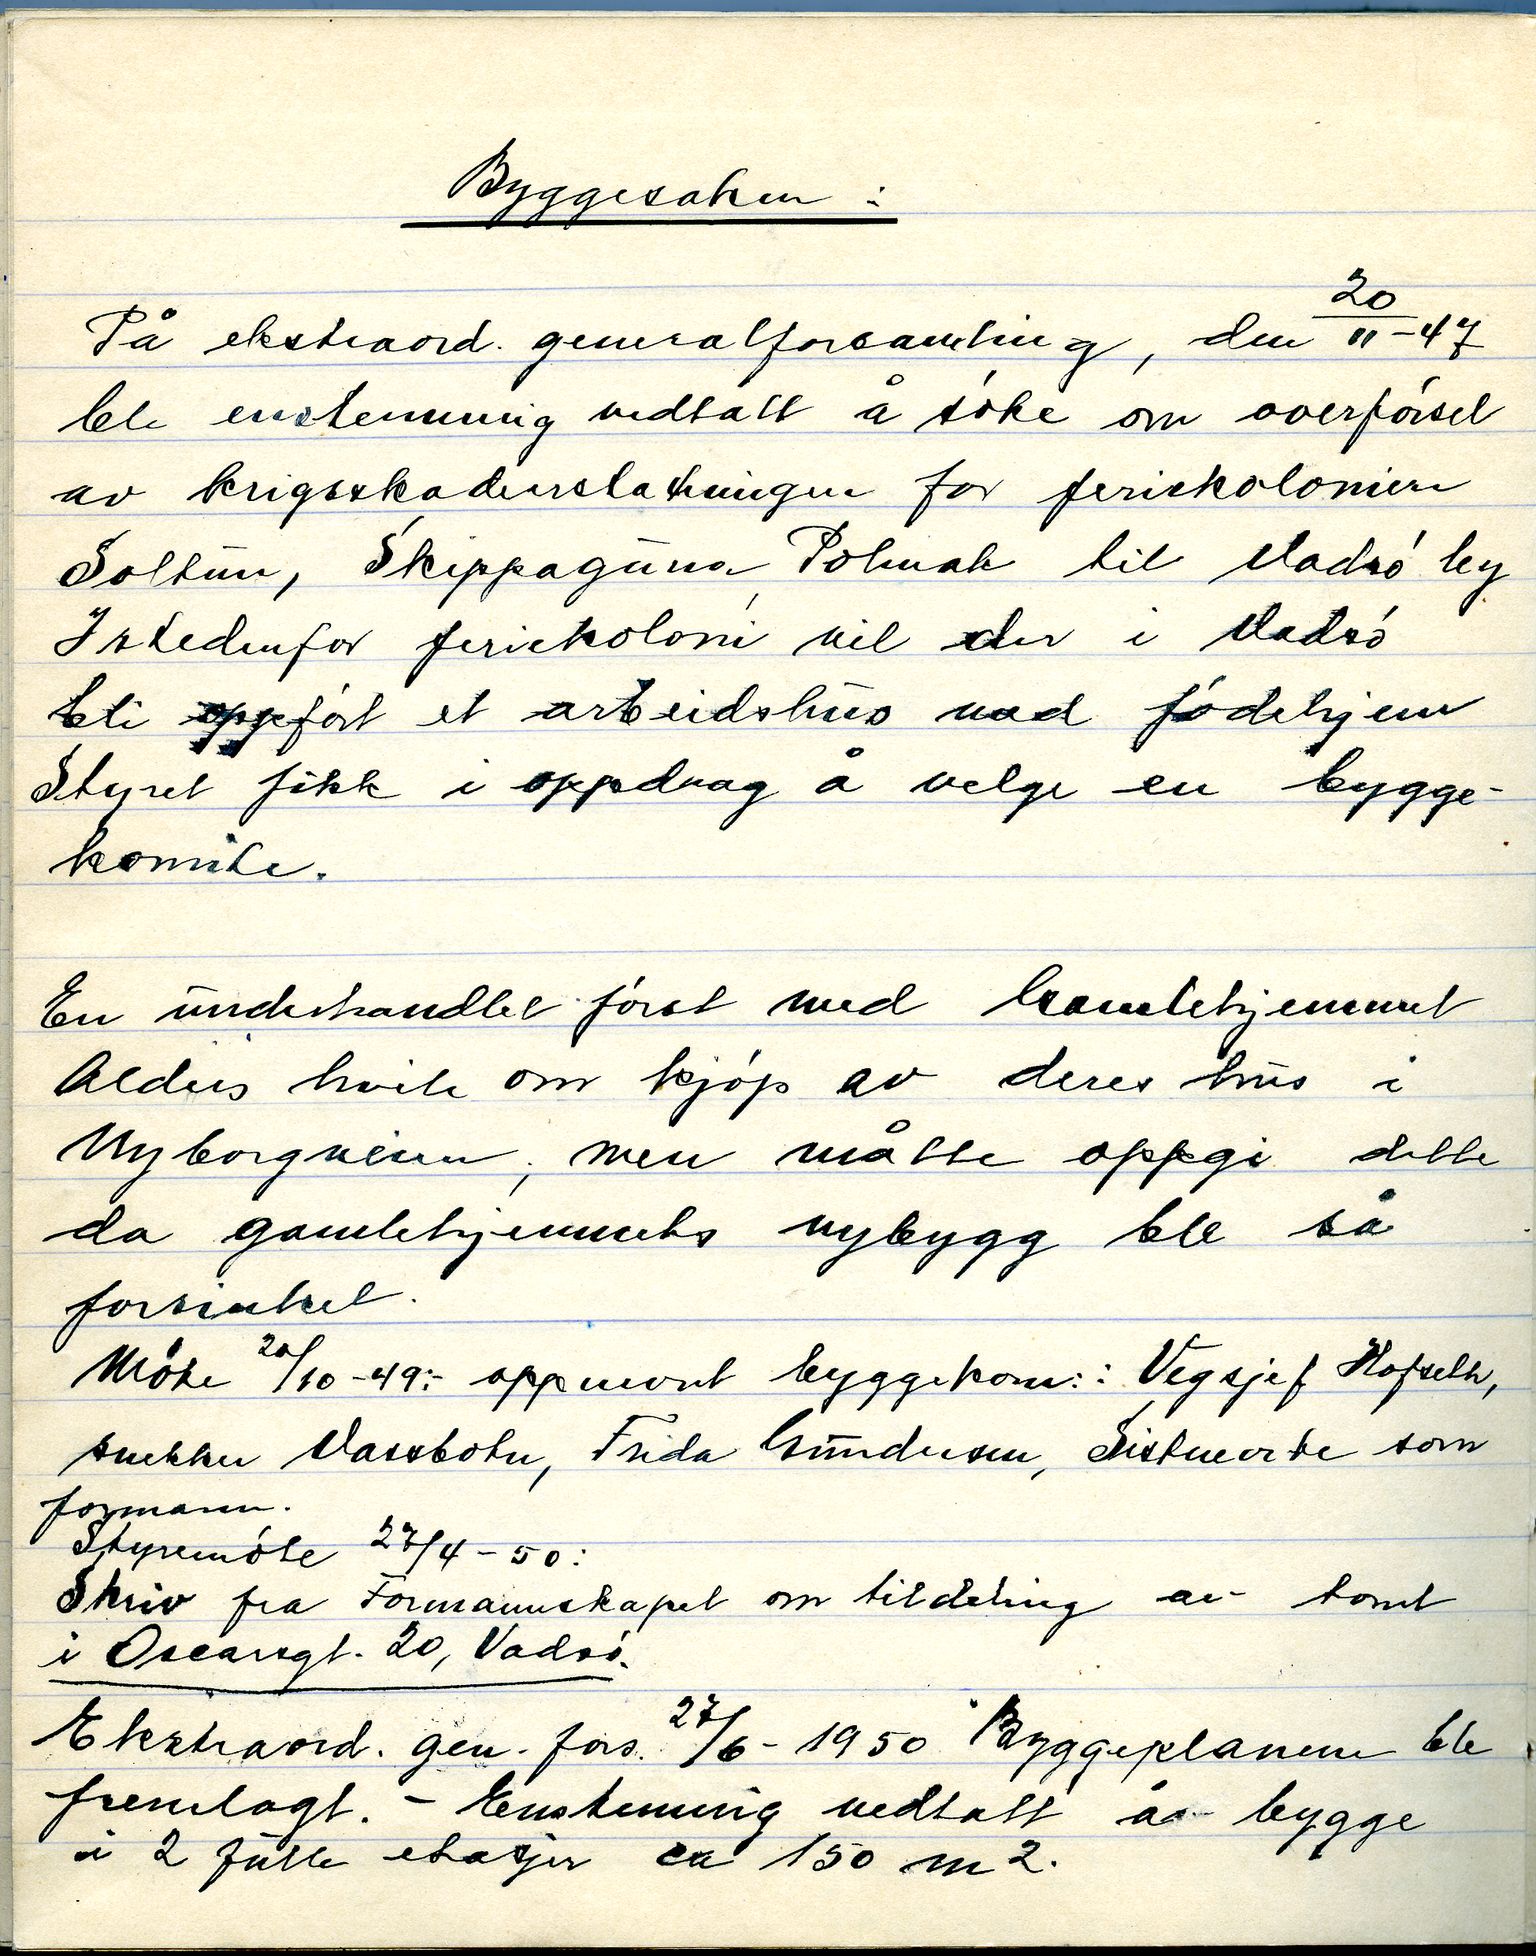 Byggesaken :
På ekstraord. generalforsamling, den 20/11-47
ble enstemmig vedtatt å søke om overførsel
av krigsskadeerstatningen for feriekolonien
Soltun, Skippaguna, Polmak til Vadsø by
Istedenfor feriekoloni vil der i Vadsø
bli oppført et arbeidshus med fødehjem
Styret fikk i oppdrag å velge en bygge-
komite.
En underhandlet først med Gamlehjemmet
Alders hvile om kjøp av deres hus i
Nyborgveien, men måtte oppgi dette
da gamlehjemmets nybygg ble så
forsinket.
Møte 20/10-49:- oppnevnt byggekom: : Vegsjef Hofseth,
snekker Vassbotn, Frida Gundersen, Sistnevnte som
formann.
Styremøte 27/4-50:
Skriv fra Formannskapet om tildeling av tomt
i Oscarsgt. 20, Vadsø.
Ekstraord. gen. fors. 27/6-1950 Byggeplanene ble
fremlagt. - Enstemmig vedtatt å bygge
i 2 fulle etasjer ca 150 m2.